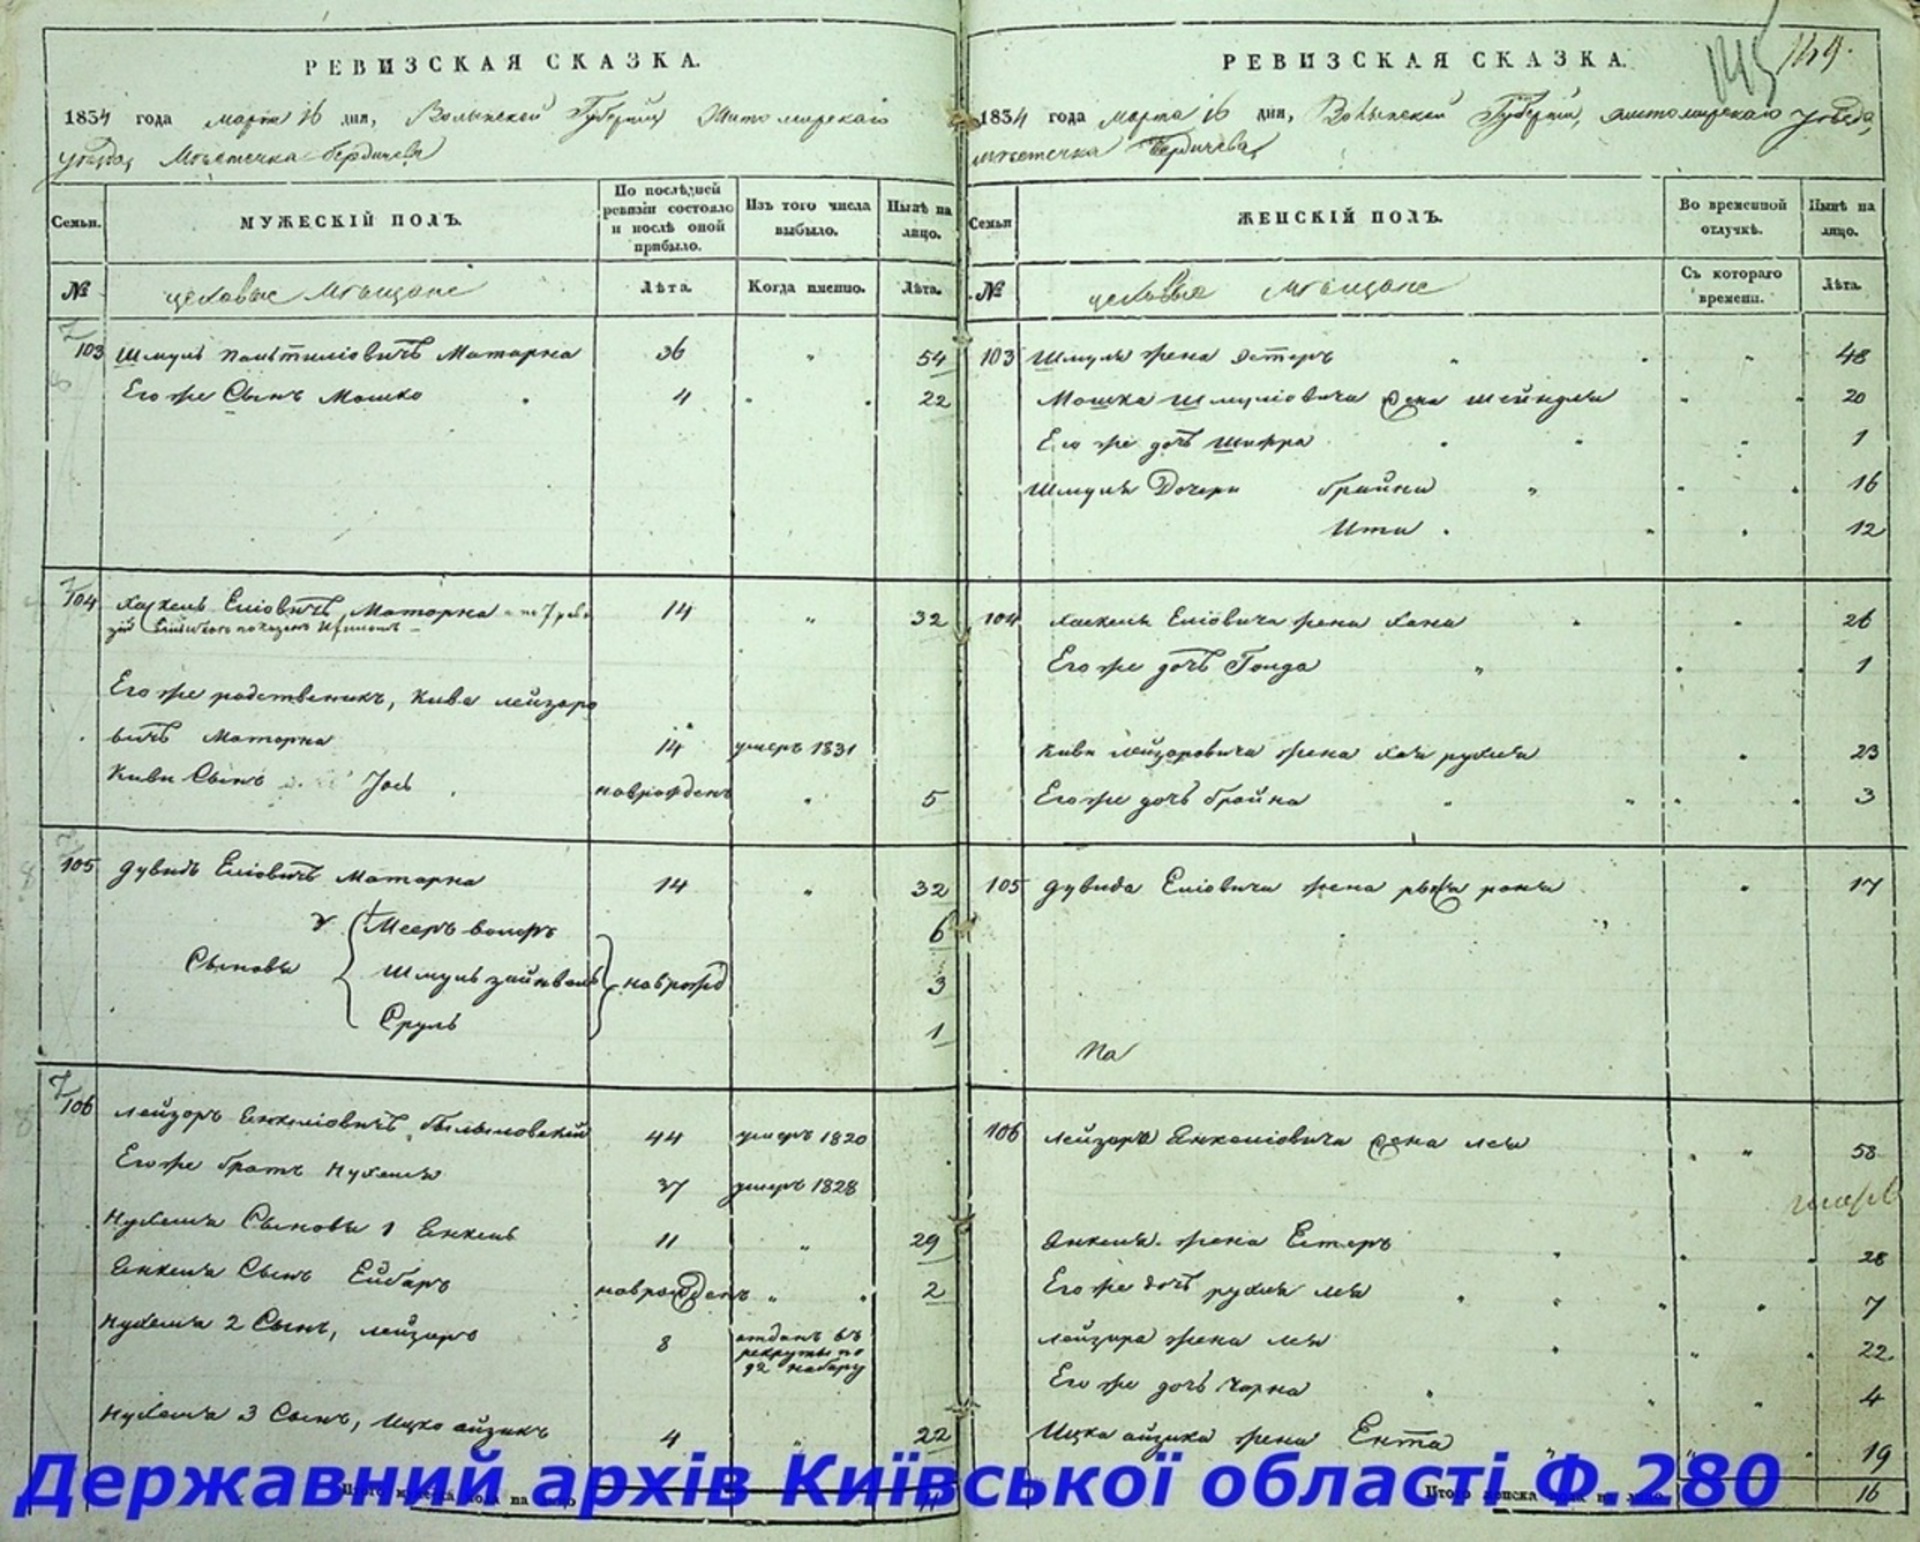 РЕВИЗСКАЯ СКАЗКА.
1834 года марта 16 дня, Волынской Губерніи Житомирскаго
уѣзда, Мѣстечка Бердичева
Семьи. МУЖЕСКІЙ ПОЛЪ. По послѣдней ревизіи состояло и послѣ оной прибыло. Изъ того числа выбыло. Нынѣ на лицо.
№ цеховые Мѣщане Лѣта. Когда имянно. Лѣта.
103 Шмуль Моторна 36 " 54
Его же Сынъ Мошко 4 22
104 Хаскель Еліовичъ Моторна 14 " 32
Его же родственикъ, Кива Лейзоро
вичъ Моторна 14 умеръ 1831
Киви Сынъ Іось новрожденъ " 5
105 Дувидъ Еліовичъ Моторна 14 " 32
Мееръ Волфъ 6
Сыновья Шмуль Зайнвель новрожд 3
Сруль 1
106 Лейзоръ Енкеліовичъ 44 умеръ 1820
Его же братъ Нухемъ 37 умеръ 1828
Нухема Сыновья 1 Енкель 11 " 29
Енкеля Сынъ новрожденъ " 2
Нухема 2 Сынъ, Лейзоръ 8 отданъ въ рекруты по 92 набору
Нухема 3 Сынъ, Ицко Айзикъ 4 " 22
РЕВИЗСКАЯ СКАЗКА.
145 149.
1834 года Марта 16 дня, Волынской Губерніи, Житомирскаго уѣзда,
Мѣстечка Бердичева
Семьи ЖЕНСКІЙ ПОЛЪ. Во временной отлучкѣ. Нынѣ на лицо.
№ цеховыя Мѣщане Съ котораго времени. Лѣта.
103 Шмуля жена Эстеръ " 48
Мошка Шмуліовича жена Шейндля 20
Его же дочь Шифра 1
Шмуля Дочери Брайна " 16
Ита 12
104 Хаскеля Еліовича жена Хана 26
Его же дочь 1
Киви Лейзоровича жена Хая Рухля 23
Его же дочь Брайна 3
105 Дувида Еліовича жена 17
На
106 Лейзора Енкеліовича жена Лея " 58
Енкеля жена Естеръ 28
Его же дочь Рухля Лея 7
Лейзора жена Лея 22
Его же дочь Чарна 4
Ицка Айзика жена Ента " 19
Итого женска пола на лицо 16
Державний архів Київської області Ф.280